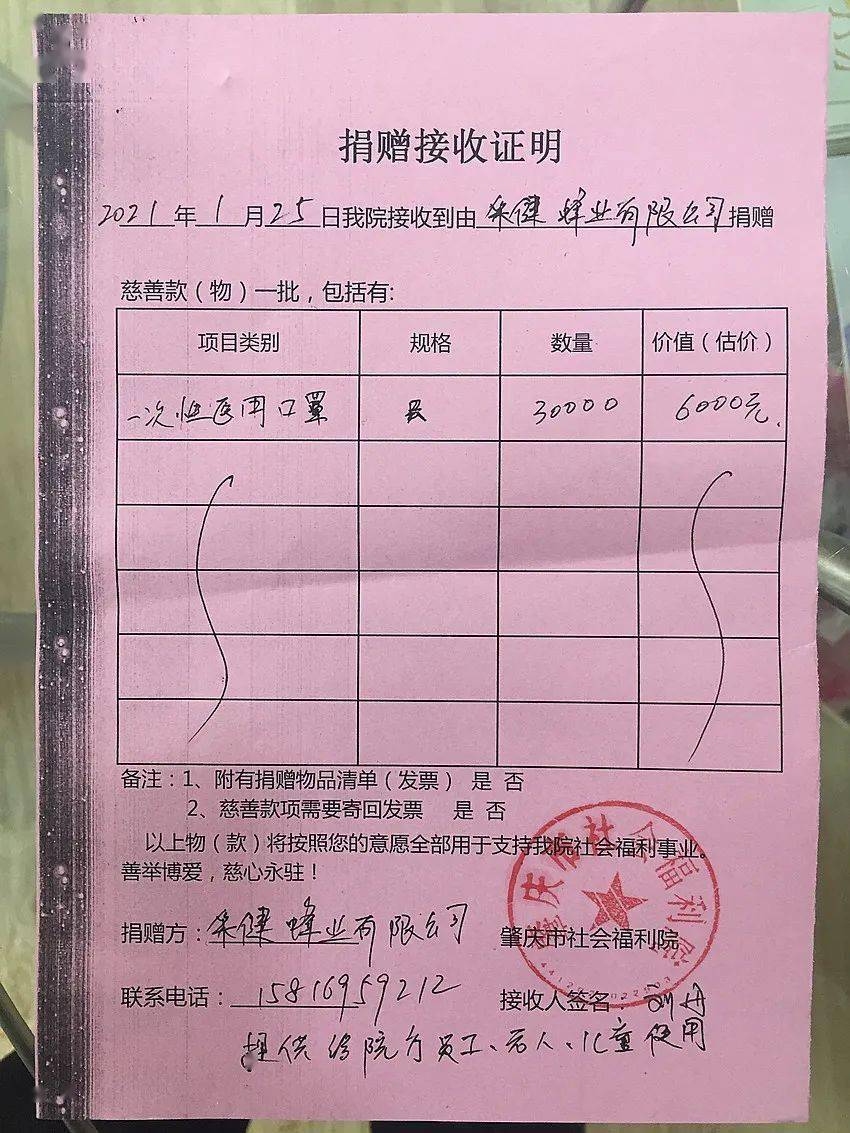 捐赠接收证明
2021年1月25日我院接收到由采健蜂业有限公司捐赠
慈善款（物）一批，包括有:
项目类别 规格 数量 价值（估价）
一次性医用口罩 30000 6000元
备注：1、附有捐赠物品清单（发票） 是 否
2、慈善款项需要寄回发票 是 否
以上物（款）将按照您的意愿全部用于支持我院社会福利事业。
善举博爱，慈心永驻！
捐赠方：采健蜂业有限公司 肇庆市社会福利院
联系电话：15816959212 接收人签名：
提供给院方员工、老人、儿童使用
肇庆市社会福利院